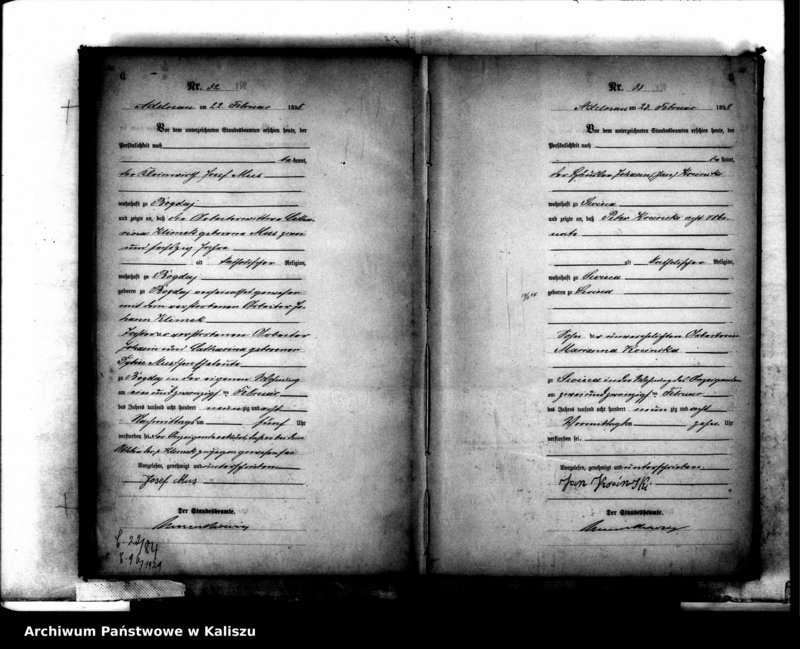 Nr. 32
Adelnau am 22 Februar 1898
Vor dem unterzeichneten Standesbeamten erschien heute, der
Persönlichkeit nach
be kannt,
der Kleinwirth Josef Mus
wohnhaft zu Bogdaj
und zeigte an, daß die Arbeiterwittwe Catha-
rina Klimek geborene Mus zwei
und sechszig Jahre
alt katholischer Religion,
wohnhaft zu Bogdaj
geboren zu Bogdaj verheirathet gewesen
mit dem verstorbenen Arbeiter Jo-
hann Klimek
Tochter der verstorbenen Arbeiter
Johann und Catharina geborenen
Mus'schen Eheleute
zu Bogdaj in der eigenen Wohnung
am ein und zwanzigsten Februar
des Jahres tausend acht hundert neunzig und acht
Nachmittags um fünf Uhr
verstorben sei.
Klimek zugegen gewesen sei
Vorgelesen, genehmigt und unterschrieben
Josef Mus
Der Standesbeamte.
Nr. 33
Adelnau am 23 Februar 1898
Vor dem unterzeichneten Standesbeamten erschien heute, der
Persönlichkeit nach
be kannt,
der Häusler Johann (Jan) Kocinski
wohnhaft zu
und zeigte an, daß Peter Kocinski acht Mo-
nate
alt katholischer Religion,
wohnhaft zu
geboren zu
Sohn der unverehelichten Arbeiterin
Marianna Kocinska
zu in der Wohnung des Anzeigenden
am zwei und zwanzigsten Februar
des Jahres tausend acht hundert neunzig und acht
Vormittags um zehn Uhr
verstorben sei.
Vorgelesen, genehmigt und unterschrieben
Jan Kociński
Der Standesbeamte.
Archiwum Państwowe w Kaliszu